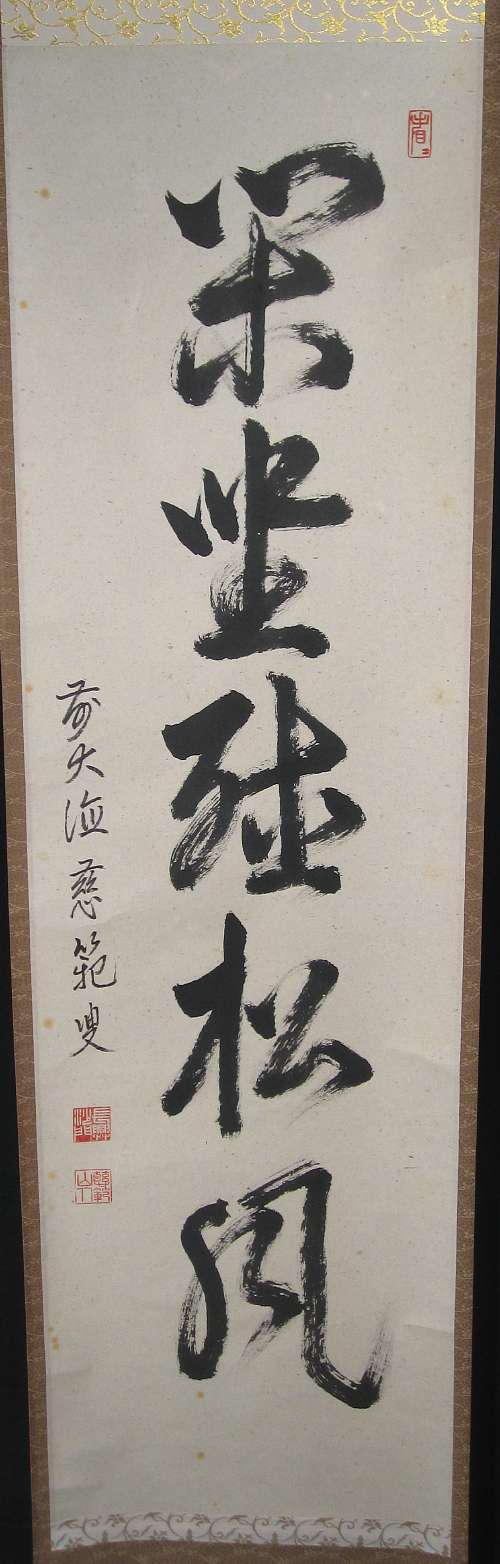 閑坐聴松風
前大徳慈範叟